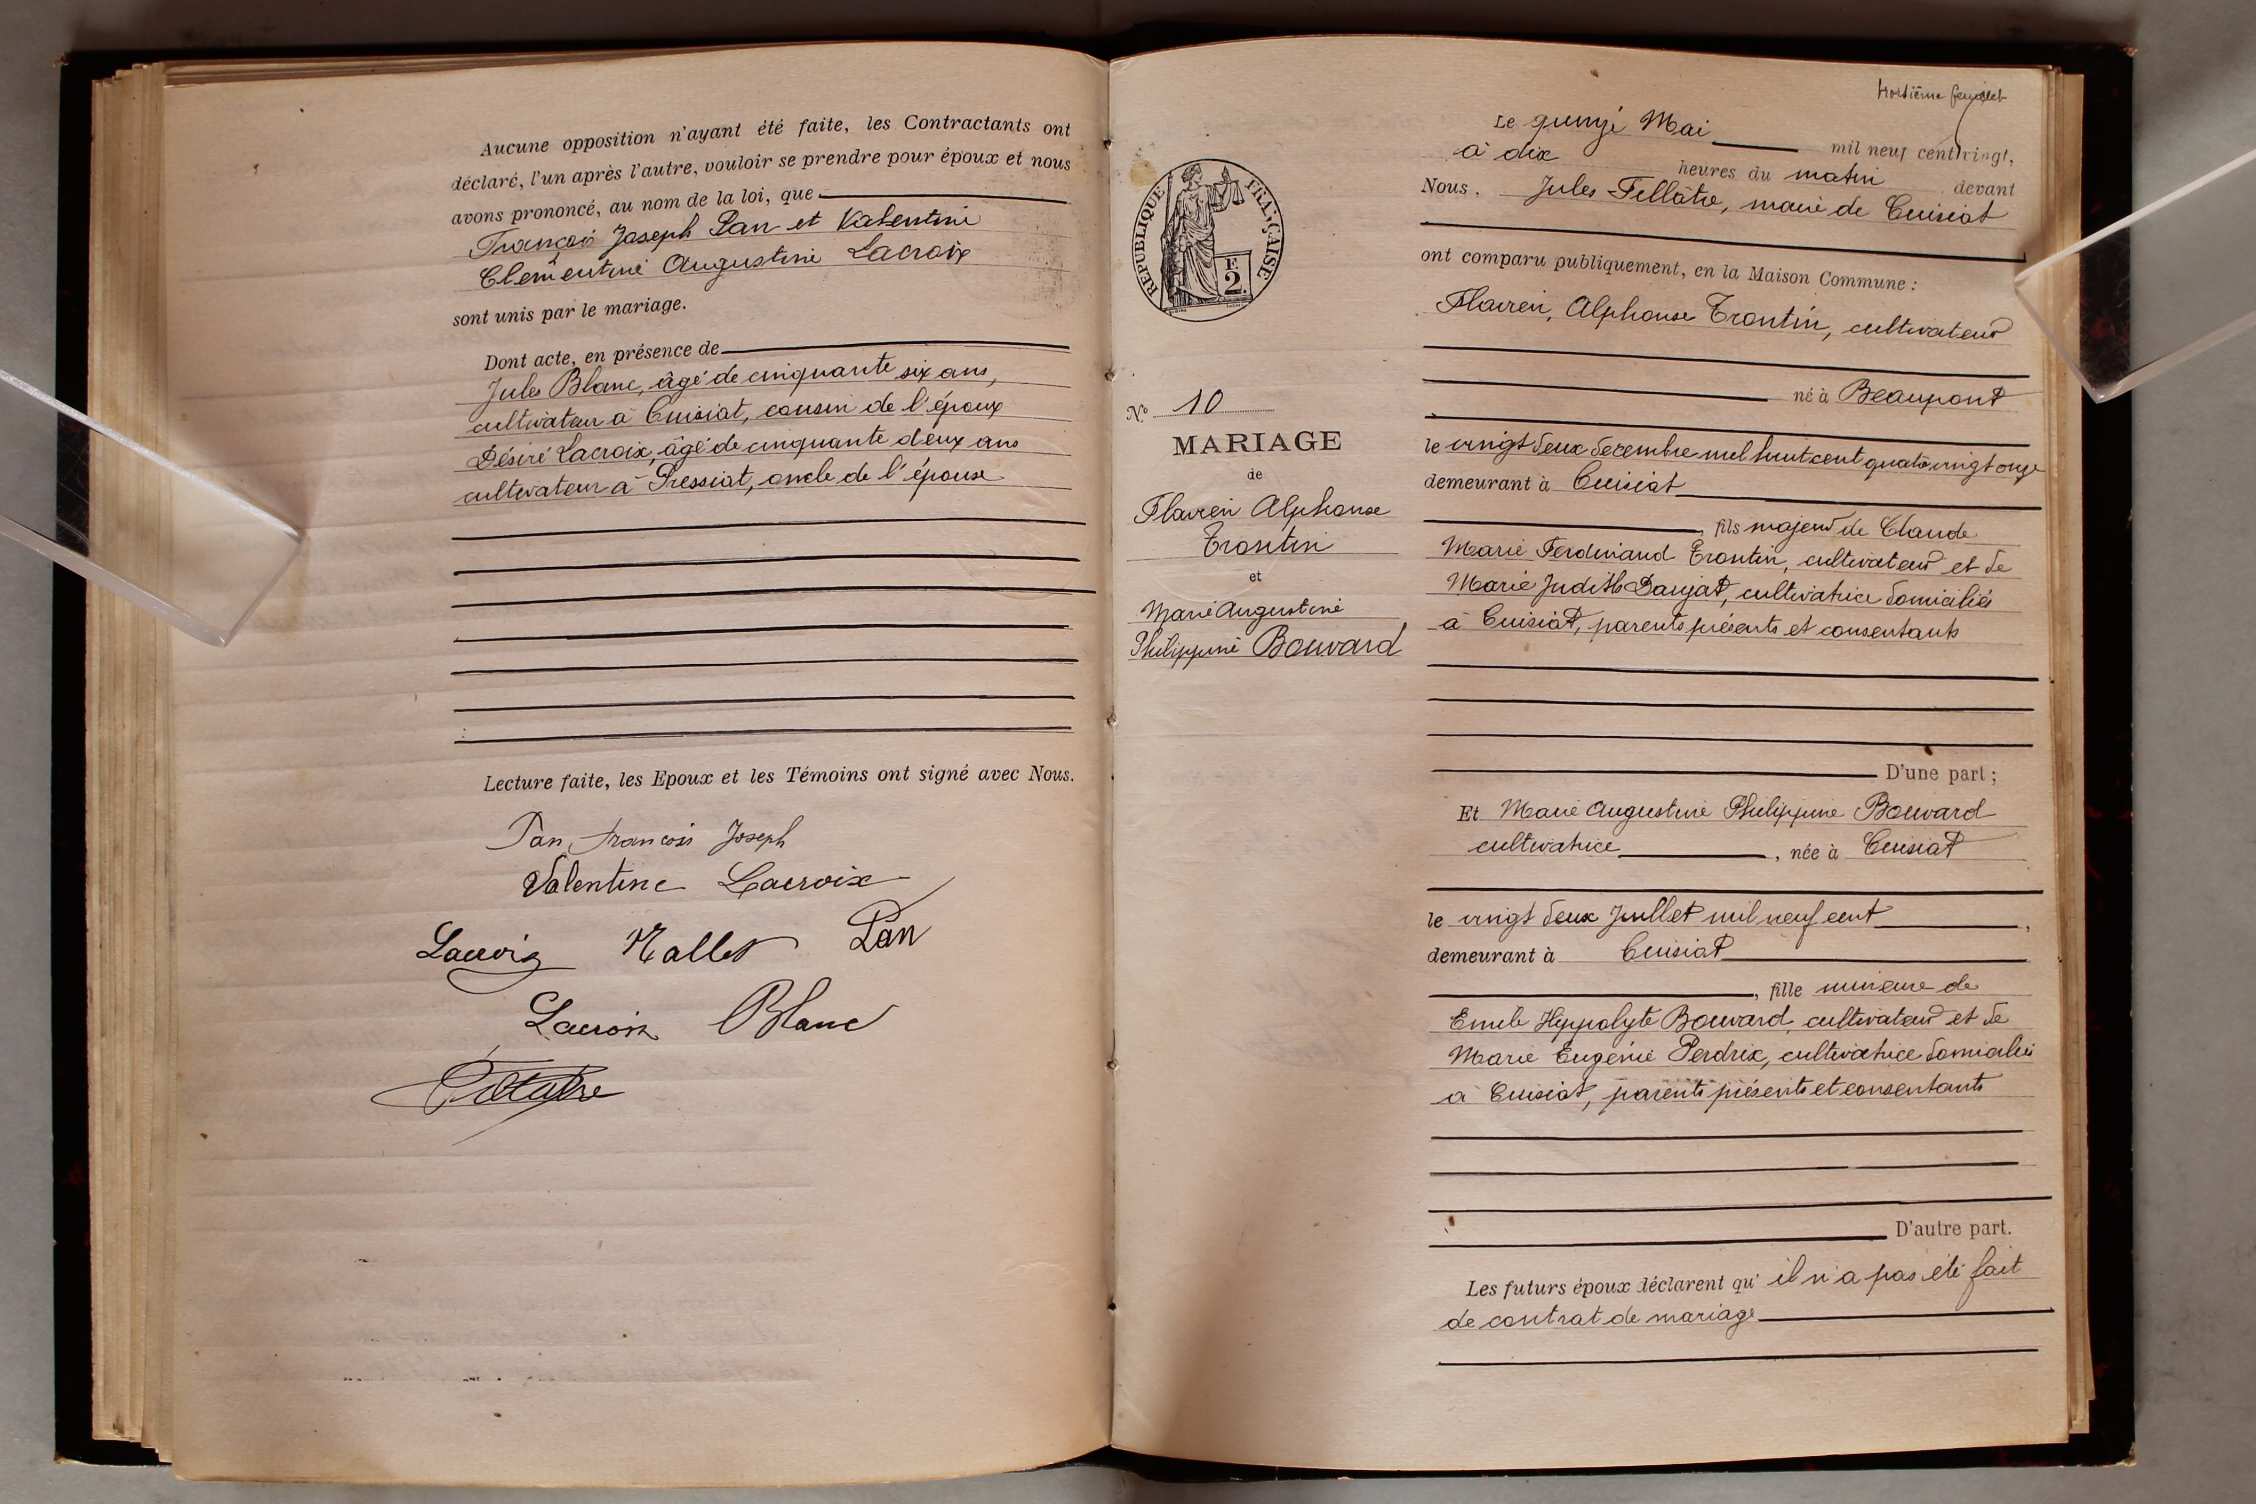 Aucune opposition n'ayant été faite, les Contractants ont
déclaré, l'un après l'autre, vouloir se prendre pour époux et nous
avons prononcé, au nom de la loi, que
François Joseph Pan et Valentine
Clémentine Augustine Lacroix
sont unis par le mariage.
Dont acte, en présence de
Jules Blanc, âgé de cinquante six ans,
cultivateur à Cuisiat, cousin de l'époux
Désiré Lacroix, âgé de cinquante deux ans
cultivateur à Pressiat, oncle de l'épouse
Lecture faite, les Epoux et les Témoins ont signé avec Nous.
Pan François Joseph
Valentine Lacroix
Lacroix Mallet Pan
Lacroix Blanc
feuillet
RÉPUBLIQUE FRANÇAISE
2
F.
No 10
MARIAGE
de
Flavien Alphonse
Trontin
et
Marie Augustine
Philippine Bouvard
Le quinze Mai mil neuf cent vingt,
à dix heures du matin devant
Nous, Jules Fillâtre, maire de Cuisiat
ont comparu publiquement, en la Maison Commune :
Flavien, Alphonse Trontin, cultivateur
né à Beaupont
le vingt deux décembre mil huit cent quatre vingt onze
demeurant à Cuisiat
, fils majeur de Claude
Marie Ferdinand Trontin, cultivateur et de
Marie Judith Daujat, cultivatrice domiciliés
à Cuisiat, parents présents et consentants
D'une part ;
Et Marie Augustine Philippine Bouvard
cultivatrice , née à Cuisiat
le vingt deux Juillet mil neuf cent ,
demeurant à Cuisiat
, fille mineure de
Emile Hyppolyte Bouvard, cultivateur et de
Marie Eugénie Perdrix, cultivatrice domiciliés
à Cuisiat, parents présents et consentants
D'autre part.
Les futurs époux déclarent qu' il n'a pas été fait
de contrat de mariage